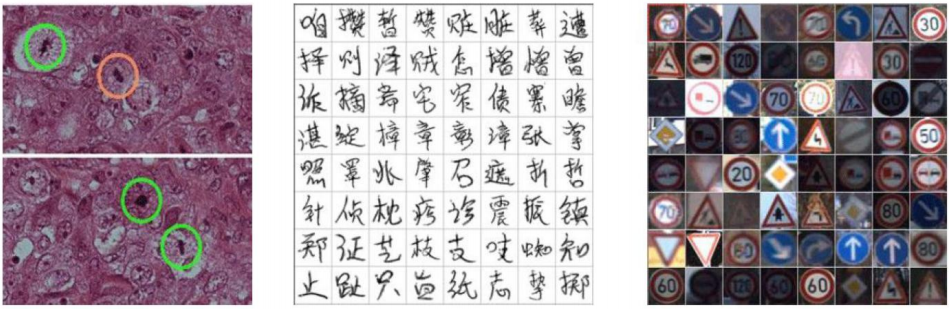 咱 攒 暂 赞 赃 脏 葬 遭
择 则 泽 贼 怎 增 憎 曾
诈 摘 斋 宅 窄 债 寨 瞻
湛 绽 樟 章 彰 漳 张 掌
照 罩 兆 肇 召 遮 折 哲
针 侦 枕 疹 诊 震 振 镇
郑 证 芝 枝 支 吱 蜘 知
止 趾 只 纸 志 挚 掷
70 30
120 30
70 70 60
50
20
70 80
80 80
60 120 60 60